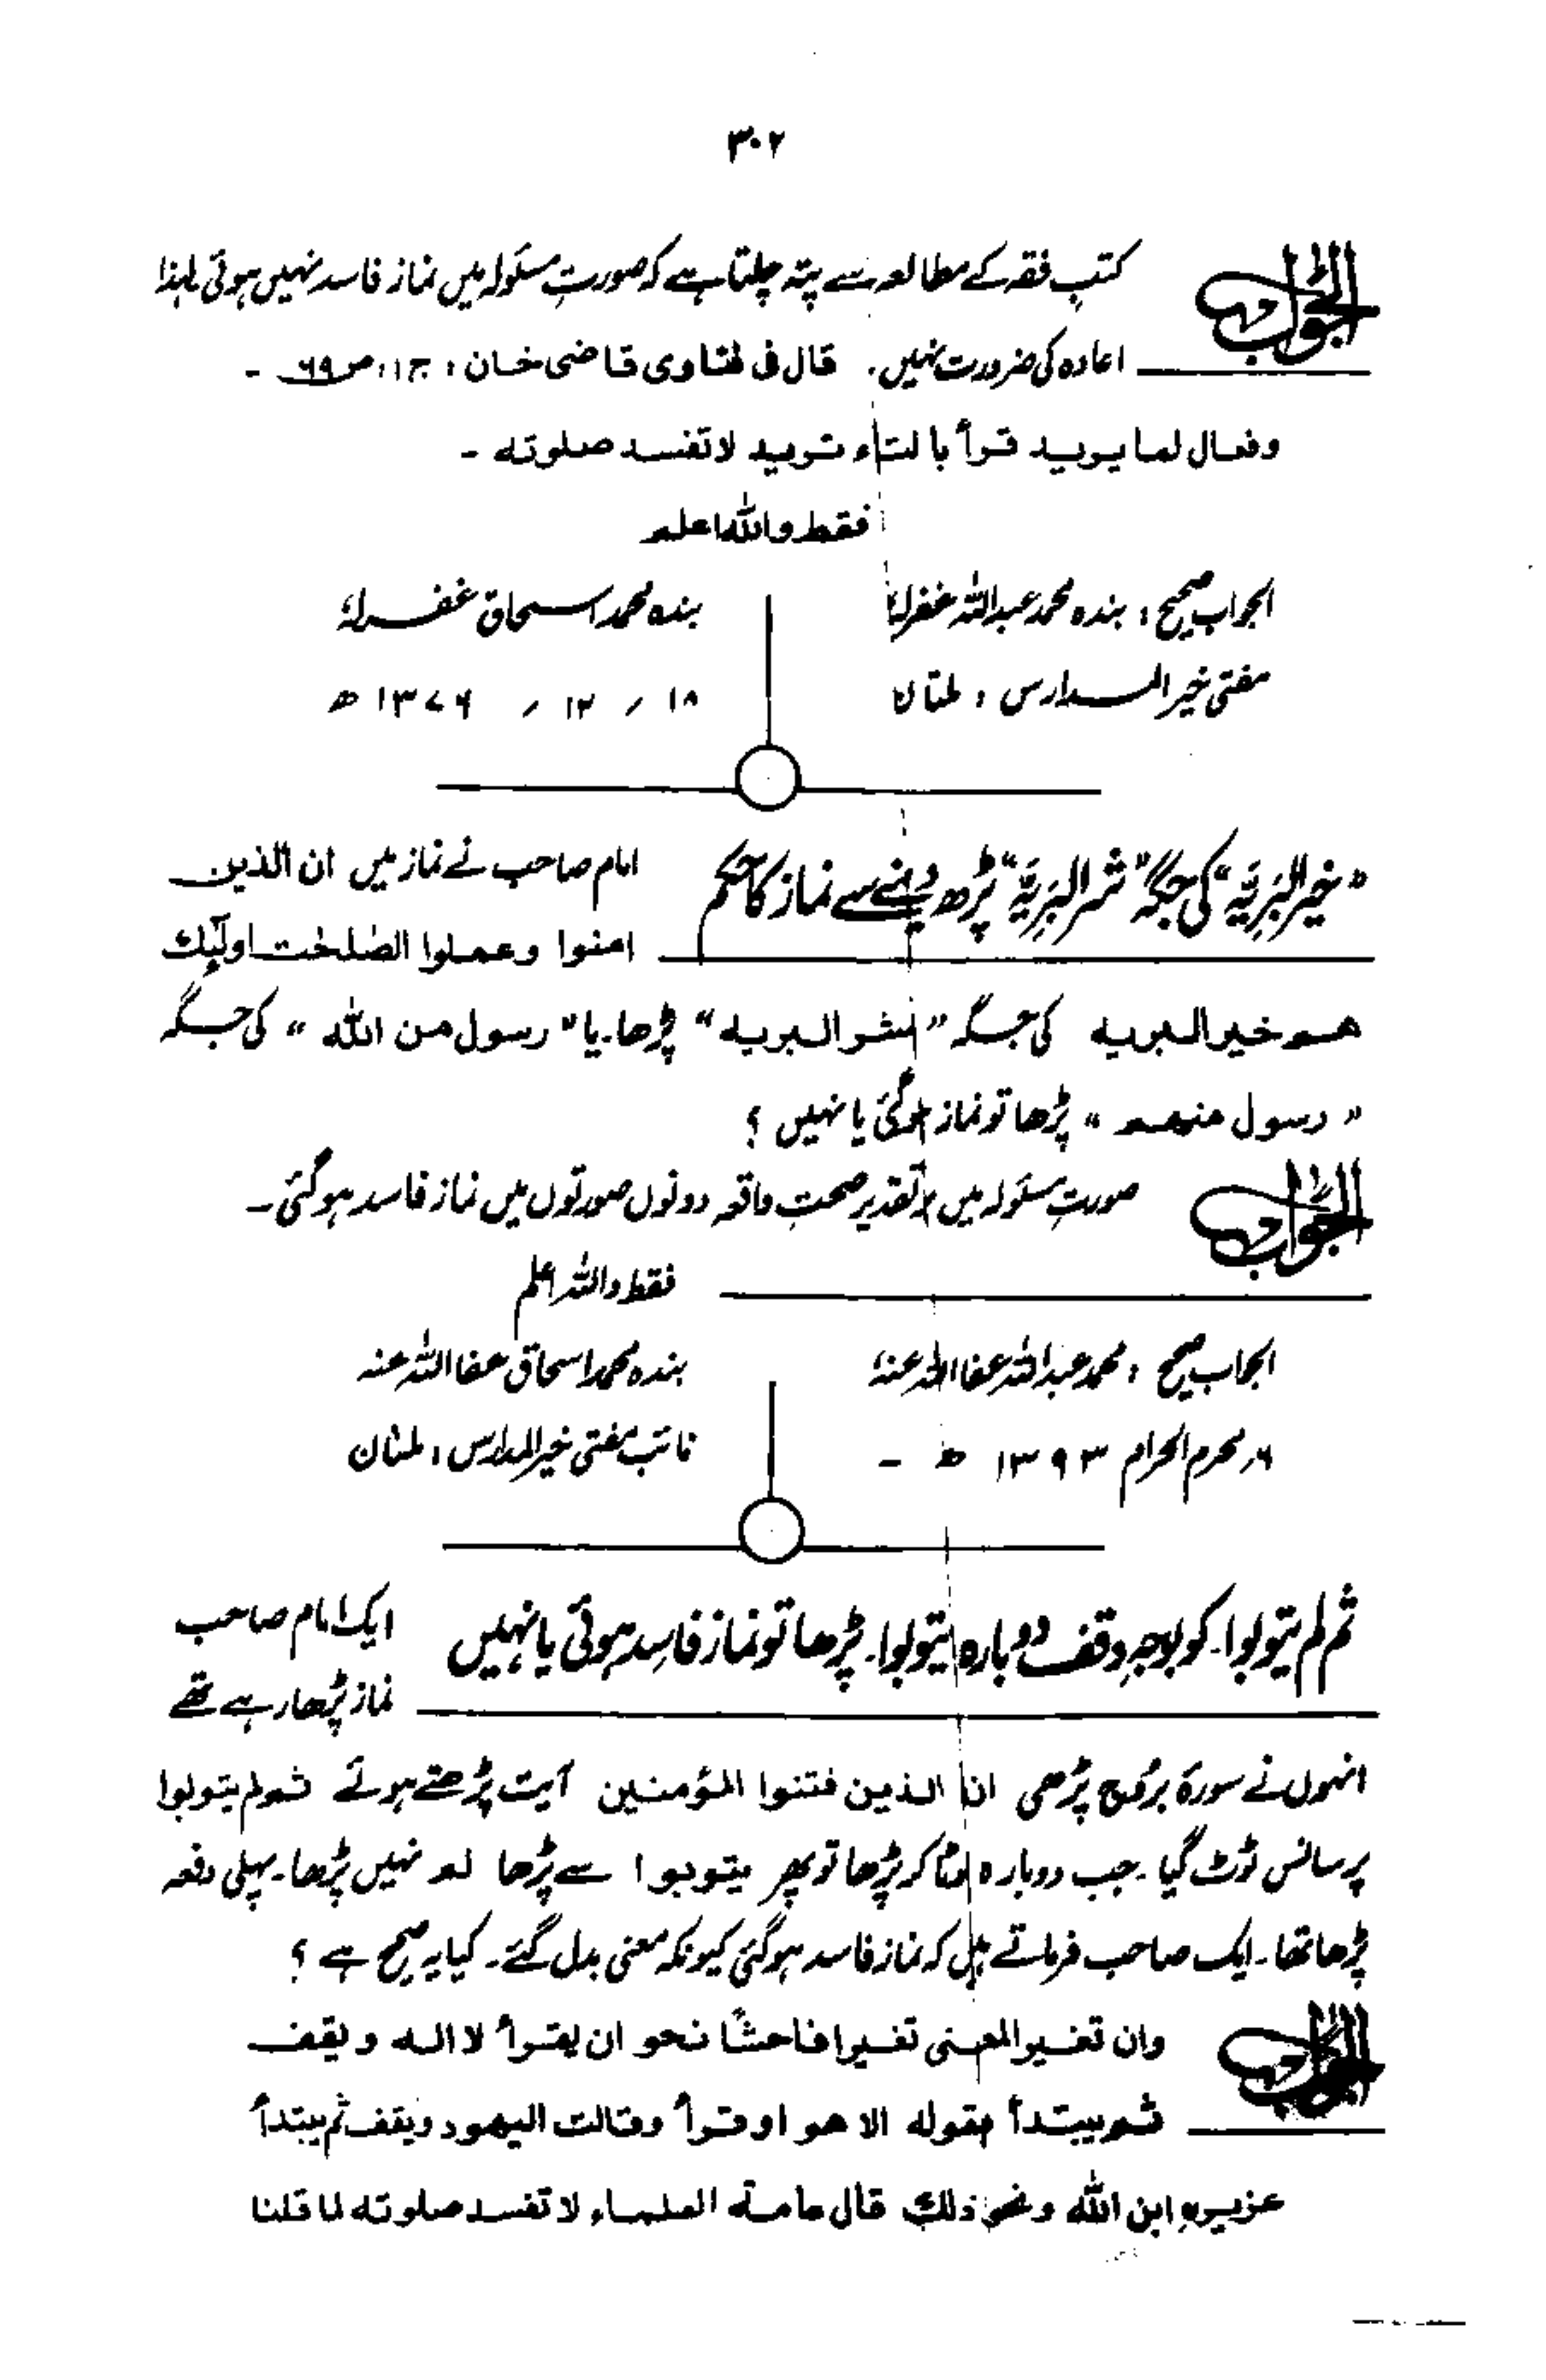 ۳۰۲
الجواب کتب فقہ کے مطالعہ سے پتہ چلتا ہے کہ صورتِ مسئولہ میں نماز فاسد نہیں ہوئی لہٰذا
اعادہ کی ضرورت نہیں. قال فی فتاوی قاضی خان : ج۱، ص۶۹ ـ
وفعال لما یرید قرأ بالتاء ترید لا تفسد صلوته ـ
فقط واللہ اعلم
الجواب صحیح : بندہ محمد عبداللہ غفرلہٗ
بندہ محمد اسحاق غفرلہٗ
مفتی خیر المدارس ، ملتان
۱۸ / ۱۲ / ۱۳۷۶ ھ
"خیر البَرِیَّہ" کی جگہ "شر البَرِیَّہ" پڑھ دینے سے نماز کا حکم
امام صاحب نے نماز میں ان الذین
امنوا وعملوا الصٰلحٰت اولٓئک
هم خیر البریه کی جگہ "شر البریه" پڑھا۔ یا "رسول من اللہ" کی جگہ
"رسول منهم" پڑھا تو نماز ہوگئی یا نہیں ؟
الجواب صورتِ مسئولہ میں بر تقدیر صحتِ واقعہ دونوں صورتوں میں نماز فاسد ہو گئی۔
فقط واللہ اعلم
الجواب صحیح : محمد عبداللہ عفا اللہ عنہٗ
بندہ محمد اسحاق عفا اللہ عنہ
محرم الحرام ۱۳۹۳ ھ ـ
نائب مفتی خیر المدارس ، ملتان
ثم لم یتوبوا۔ کو بوجہِ وقف دوبارہ یتوبوا۔ پڑھا تو نماز فاسِد ہوئی یا نہیں
ایک امام صاحب
نماز پڑھا رہے تھے
انہوں نے سورۃ بروج پڑھی ان الذین فتنوا المؤمنین آیت پڑھتے ہوئے ثم لم یتوبوا
پر سانس ٹوٹ گیا۔ جب دوبارہ لوٹا کر پڑھا تو پھر یتوبوا سے پڑھا لم نہیں پڑھا۔ پہلی دفعہ
پڑھا تھا۔ ایک صاحب فرماتے ہیں کہ نماز فاسد ہو گئی کیونکہ معنی بدل گئے۔ کیا یہ صحیح ہے ؟
الجواب وان تغیر المعنی تغیرا فاحشًا نحو ان یقرأ لا اله ویقف
ثم یبتدأ بقوله الا هو او قرأ وقالت الیهود ویقف ثم یبتدأ
عزیر ابن اللہ ونحو ذلک قال عامة العلماء لا تفسد صلوته لما قلنا